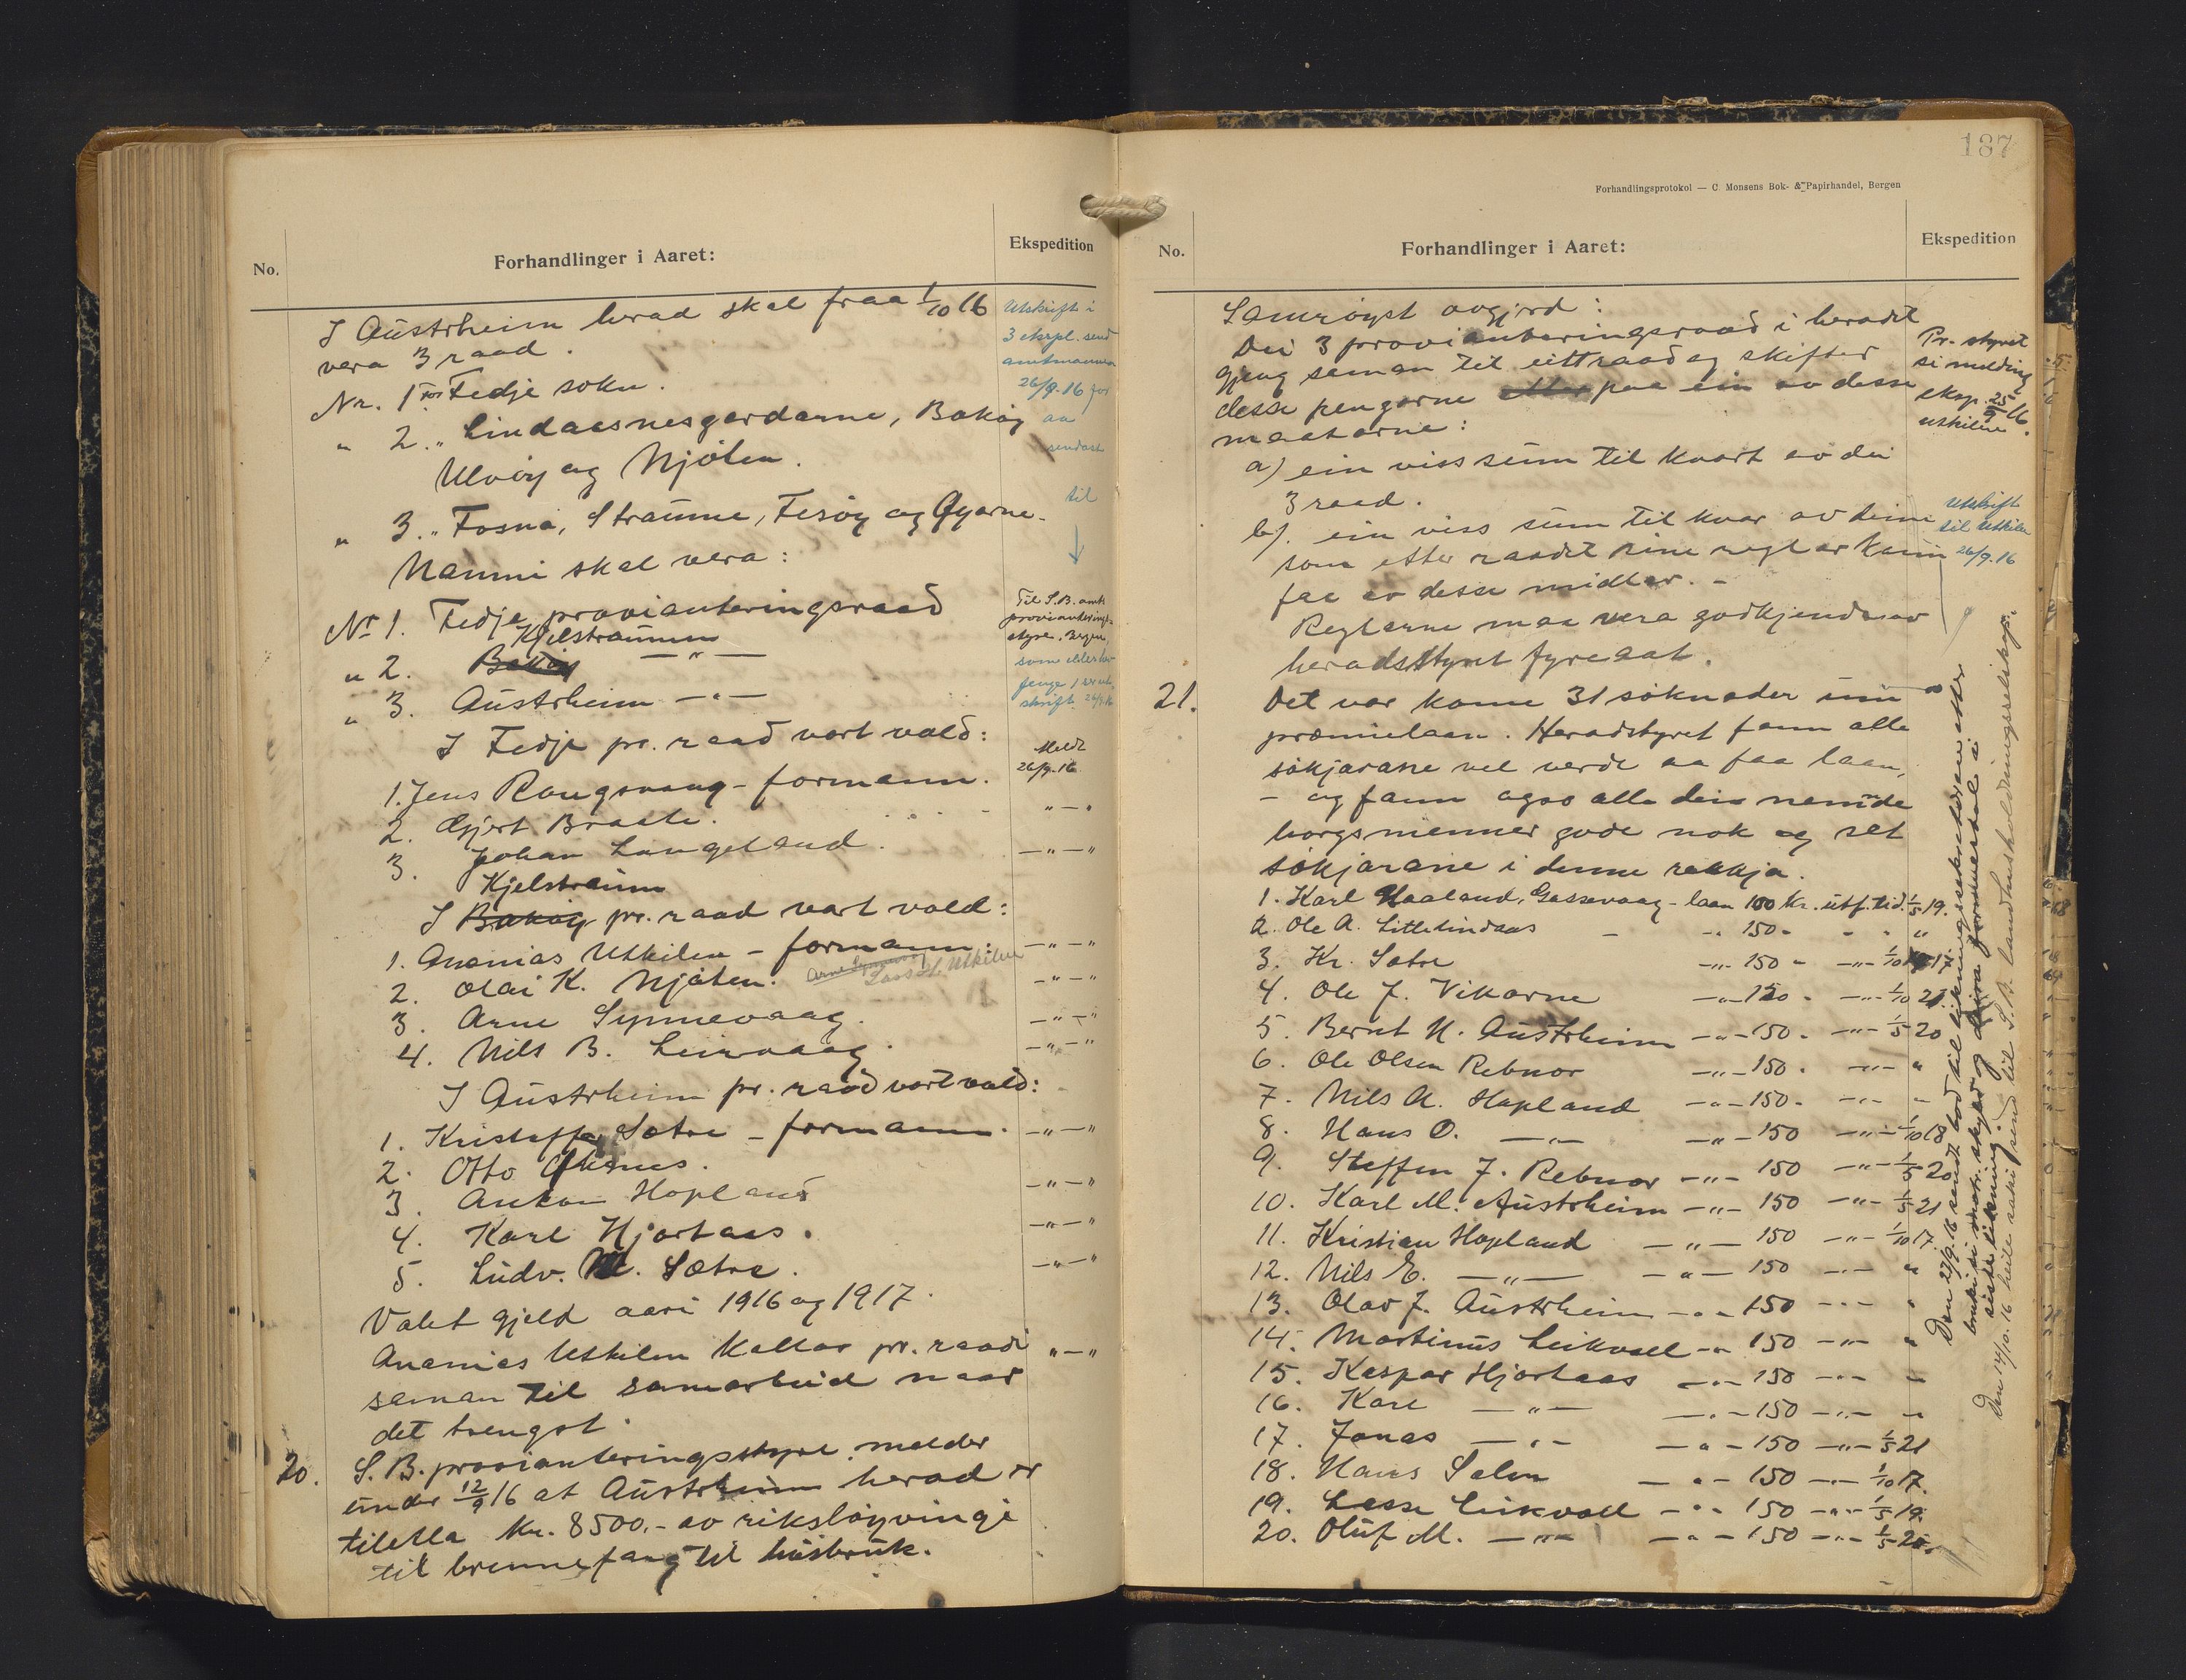 No.
Forhandlinger i Aaret:
Ekspedition
I Austrheim herad skal fraa 1/10 16
vera 3 raad.
Nr. 1 for Fedje sokn.
" 2. " Lindaasnesgardarne, Bakøy
Ulvøy og Njøten.
" 3. " Fosna, Straume, Fesøy og Øyarne.
Namni skal vera:
Nr 1. Fedje provianteringsraad
Kjelstraumen
" 2. Bakøy — " —
" 3. Austrheim — " —
I Fedje pr. raad vart vald:
1. Jens Rongevaag - formann.
2. Gjert Braate.
3. Johan Langeland.
Kjelstraum
I Bakøy pr. raad vart vald:
1. Ananias Utkilen - formann.
2. Olai K. Njøten. Arne Synnevaag
Lars Utkilen
3. Arne Synnevaag.
4. Nils B. Leirvaag.
I Austrheim pr. raad vart vald:
1. Kristoffer Sætre - formann.
2. Otto
3. Anton Hopland
4. Karl Hjartaas.
5. Ludv. M. Sætre.
Valet gjeld aari 1916 og 1917.
Ananias Utkilen kallar pr. raadi
saman til samarbeid naar
det trengst.
20. S. B. provianteringsstyre melder
under 12/9 16 at Austrheim herad er
tiletla Kr. 8500,- av riksløyvingi
til brennefang til husbruk.
Utskrift i
3 ekspl. send
amtmannen
26/9.16 for
aa
sendast
til
Til S.B. amts
provianterings-
styre, Bergen,
som elles hev
fenge 1 sr. ut-
skrift. 26/9.16
Meldt
26/9.16
" — "
— " — "
— " — "
— " — "
— " — "
— " — "
— " — "
— " — "
— " — "
— " — "
" — "
187
Forhandlingsprotokol — C Monsens Bok- & Papirhandel, Bergen
No.
Forhandlinger i Aaret:
Ekspedition
Samrøyst avgjord:
Dei 3 provianteringsraad i heradet
gjeng saman til eitt raad og skifter
desse pengarne paa ein av desse
maatarne:
a) ein viss sum til kvart av dei
3 raad.
b). ein viss sum til kvar av deim
som etter raadet sine reglar kann
faa av desse midlar. -
Reglarne maa vera godkjende av
heradsstyret fyreaat.
21. Det var kome 31 søknader um
præmielaan. Heradstyret fann alle
søkjarane vel verde aa faa laan,
- og fann ogso alle dei nemde
borgsmenner gode nok og set
søkjarane i denne rekkja.
1. Karl Haaland, Gassevaag - laan 100 kr. utb. tid. 1/5 19.
2. Ole A. Littlelindaas - - " 150 - - " "
3. Kr. Sætre - " - 150 - - " - 1/10 17.
4. Ole J. Vikarne - " - 150 - - " - 1/10 21.
5. Bernt N. Austrheim - " - 150 - - " - 1/5 20
6. Ole Olsen Rebnor - " - 150 - - " - "
7. Nils A. Hopland - " - 150 - - " - "
8. Hans O. — " — - " - 150 - " - 1/10 18
9. Steffen J. Rebnor - " - 150 - " - 1/5 20
10. Karl M. Austrheim - " - 150 - " - 1/5 21
11. Kristian Hopland - " - 150 - " - 1/10 17.
12. Nils E. — " — - " - 150 - " - "
13. Olav J. Austrheim - " - 150 - " - "
14. Martinus Leikvoll - " - 150 - " - "
15. Kaspar Hjartaas - " - 150 - " - "
16. Karl — " — - " - 150 - " - "
17. Jonas — " — - " - 150 - " - 1/5 21
18. Hans Salen - " - 150 - " - 1/10 17.
19. Lasse Leikvoll - " - 150 - " - 1/5 19.
20. Oluf M. — " — - " - 150 - " - 1/5 20.
Pr. styret
si melding
eksp. 25/9 16.
utkilen
Utskrift
til Utkilen
26/9.16
Den 27/9.16 sendt bod til likningssekretæren etter
bruki si skyld og formuestal i
siste likning.
Den 14/10.16 heile saki send til S.B. landhusholdningsselskap.